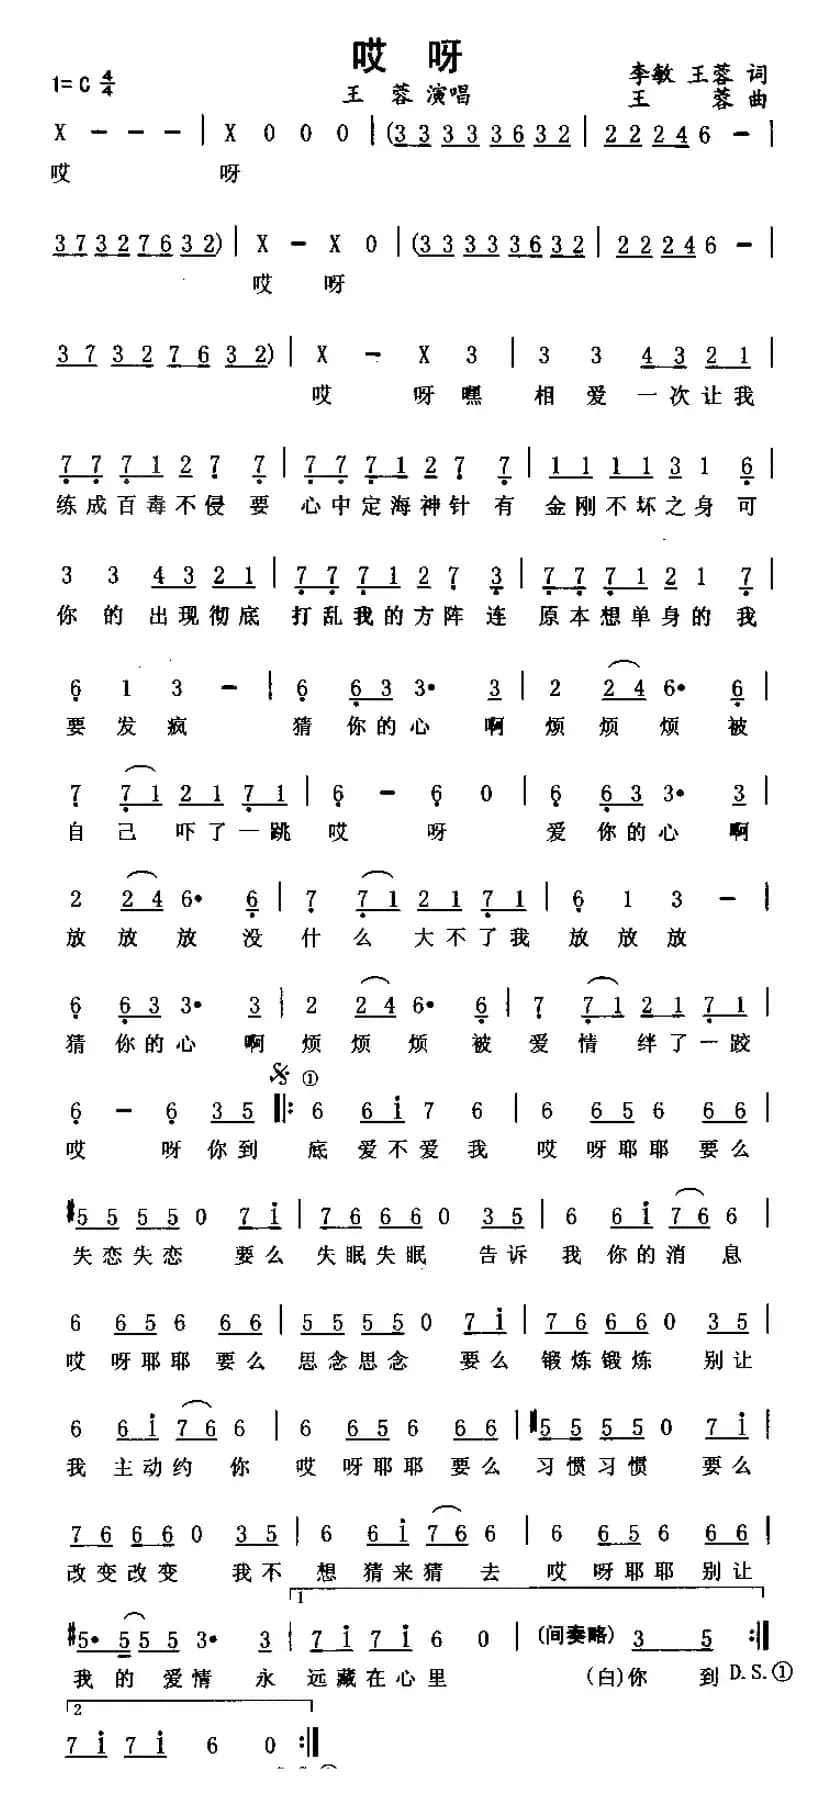 哎 呀
1=C 4/4
王 蓉 演唱
李敏 王蓉 词
王 蓉 曲
X - - - | X 0 0 0 | (3 3 3 3 3 6 3 2 | 2 2 2 4 6 - |
哎 呀
3 7 3 2 7 6 3 2) | X - X 0 | (3 3 3 3 3 6 3 2 | 2 2 2 4 6 - |
哎 呀
3 7 3 2 7 6 3 2) | X - X 3 | 3 3 4 3 2 1 |
哎 呀嘿 相 爱 一次让我
7 7 7 1 2 7 7 | 7 7 7 1 2 7 7 | 1 1 1 1 3 1 6 |
练成百毒不侵 要 心中定海神针 有 金刚不坏之身可
3 3 4 3 2 1 | 7 7 7 1 2 7 3 | 7 7 7 1 2 1 7 |
你 的 出现彻底 打乱我的方阵 连 原本想单身的 我
6 1 3 - | 6 6 3 3· 3 | 2 2 4 6· 6 |
要 发 疯 猜 你的心 啊 烦 烦 烦 被
7 7 1 2 1 7 1 | 6 - 6 0 | 6 6 3 3· 3 |
自 己 吓了一跳 哎 呀 爱 你的心 啊
2 2 4 6· 6 | 7 7 1 2 1 7 1 | 6 1 3 - |
放 放 放 没 什 么 大不了我 放 放 放
6 6 3 3· 3 | 2 2 4 6· 6 | 7 7 1 2 1 7 1 |
猜 你的心 啊 烦 烦 烦 被 爱 情 绊了一跤
①
6 - 6 3 5 ‖: 6 6 i 7 6 | 6 6 5 6 6 6 |
哎 呀你到 底 爱不爱我 哎 呀耶耶 要么
#5 5 5 5 0 7 i | 7 6 6 6 0 3 5 | 6 6 i 7 6 6 |
失恋失恋 要么 失眠失眠 告诉 我 你的消 息
6 6 5 6 6 6 | 5 5 5 5 0 7 i | 7 6 6 6 0 3 5 |
哎 呀耶耶 要么 思念思念 要么 锻炼锻炼 别让
6 6 i 7 6 6 | 6 6 5 6 6 6 | #5 5 5 5 0 7 i |
我 主动约 你 哎 呀耶耶 要么 习惯习惯 要么
7 6 6 6 0 3 5 | 6 6 i 7 6 6 | 6 6 5 6 6 6 |
改变改变 我不 想 猜来猜 去 哎 呀耶耶 别让
1
#5· 5 5 5 3· 3 | 7 i 7 i 6 0 | (间奏略) 3 5 :‖
我 的 爱情 永 远藏在心里 (白)你 到 D.S.①
2
7 i 7 i 6 0 :‖